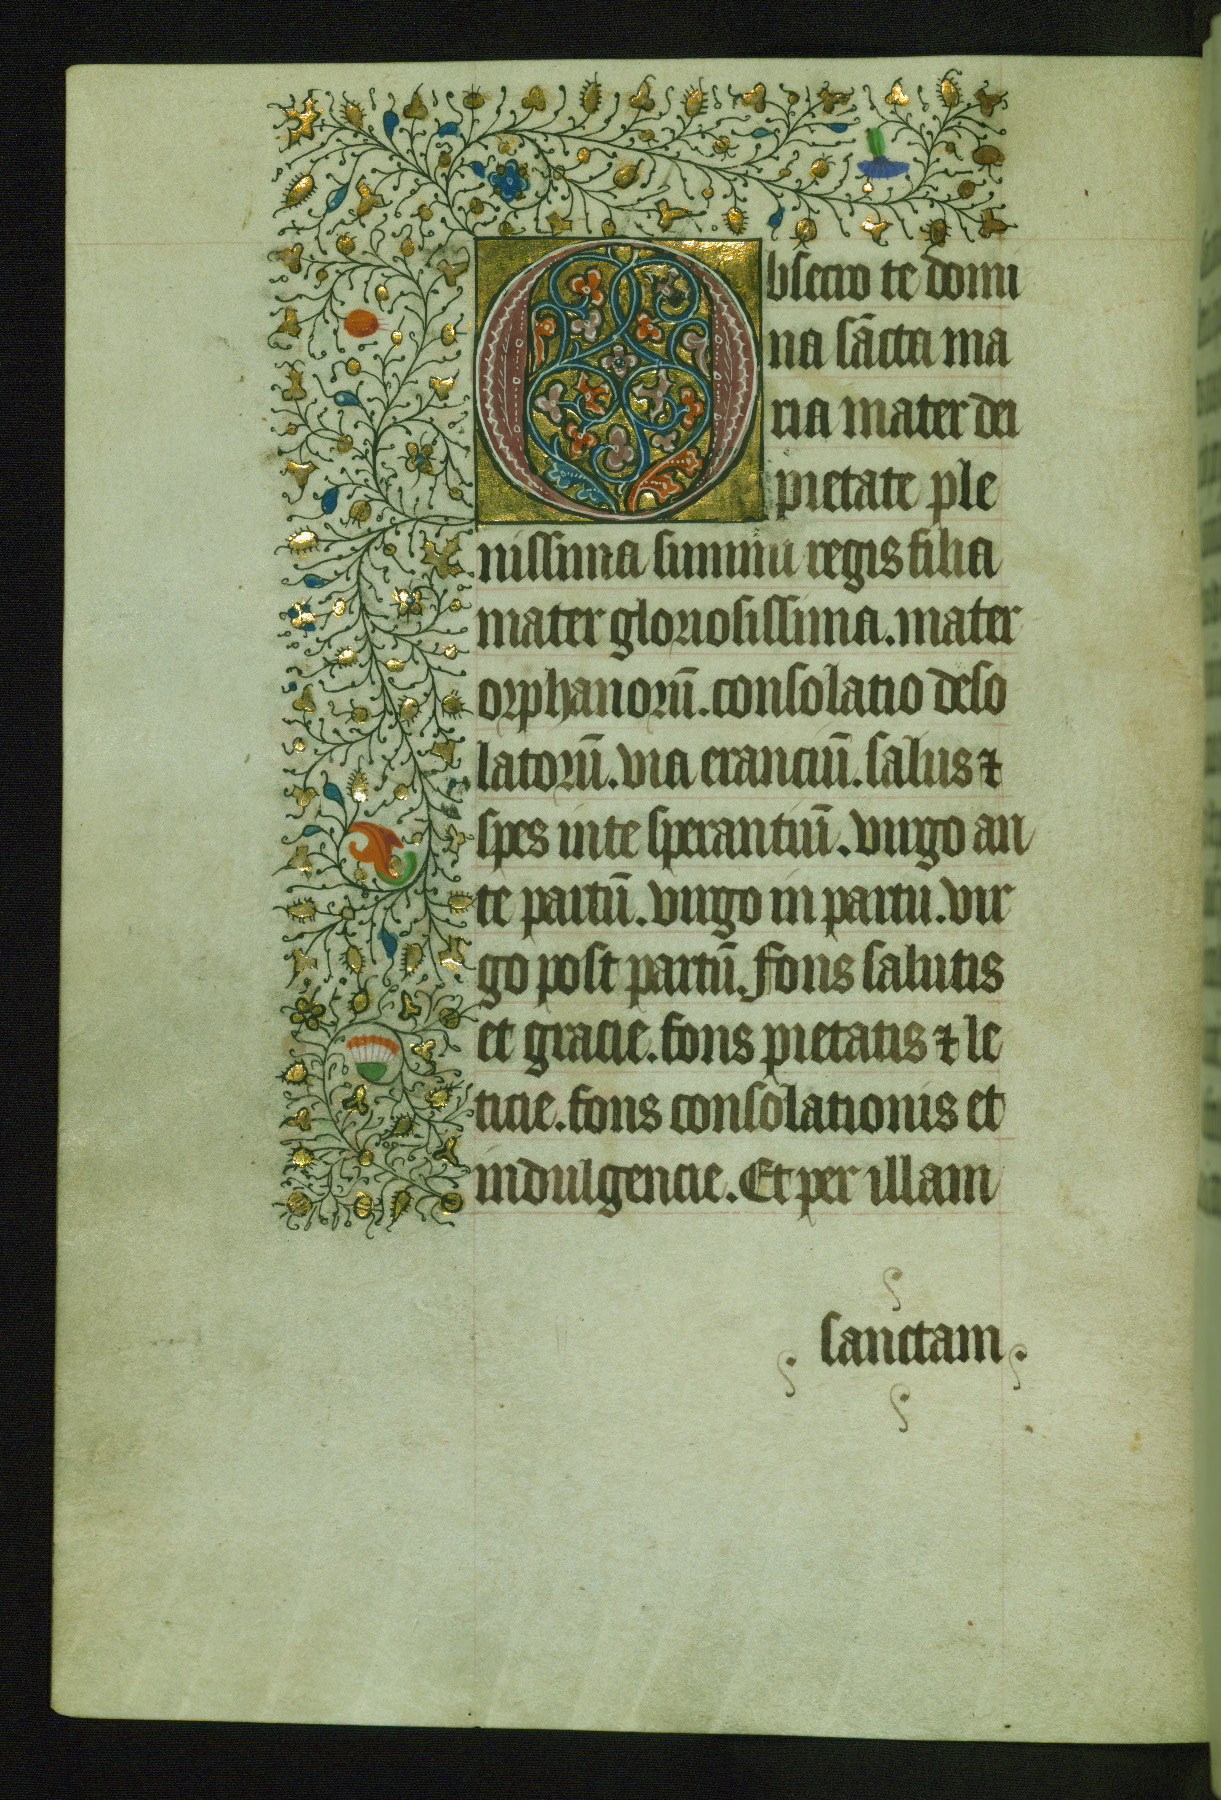 Obsecro te domi
na sc̄ta ma
ria mater dei
pietate ple
nissima summi regis filia
mater gloriosissima. mater
orphanorū. consolatio deso
latorū. via eranciū. salus ⁊
spes in te sperantiū. virgo an
te partū. virgo in partu. vir
go post partū. fons salutis
et gracie. fons pietatis ⁊ le
ticie. fons consolationis et
indulgencie. Et per illam
sanctam